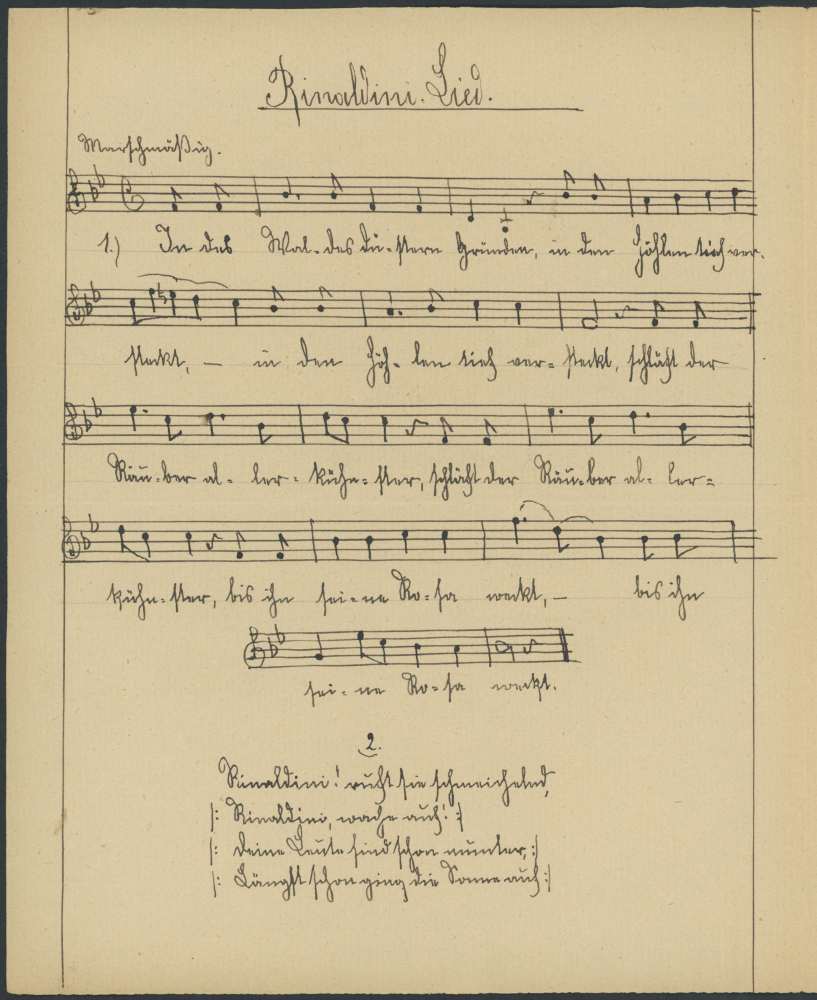 Rinaldini-Lied.
Marschmäßig.
1.) In des Wal-des dü-stern Gründen, in den Höhlen tief ver-
steckt, — in den Höh-len tief ver-steckt, schläft der
Räu-ber al-ler-kühn-ster, schläft der Räu-ber al-ler-
kühn-ster, bis ihn sei-ne Ro-sa weckt, — bis ihn
sei-ne Ro-sa weckt.
2.
Rinaldini! ruft sie schmeichelnd,
|: Rinaldini, wache auf! :|
|: Deine Leute sind schon munter, :|
|: Längst schon ging die Sonne auf :|